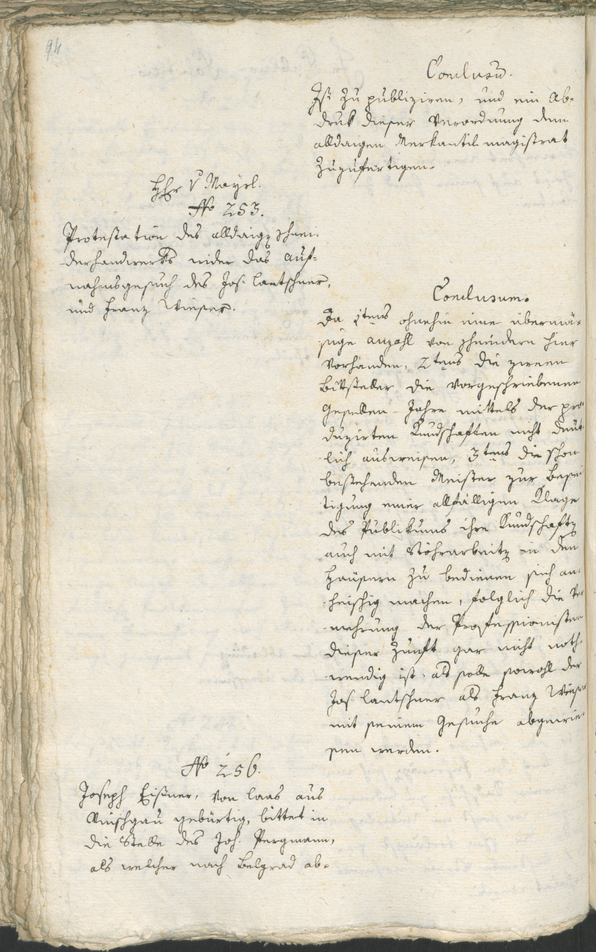 94
Conclusu̅.
Ist zu publiziren, und ein Ab-
druk dieser Verordnung dem
alldaigen Merkantil magistrat
zuzufertigen.
Hhr v Mayrl.
No 253.
Protestation des alldaigen Schnei-
derhandwerks wider das auf-
nahmsgesuch des Jos: lantschner,
und Franz Wieser.
Conclusum.
Da 1tens ohnehin eine übermä-
sige anzahl von schneidern hier
vorhanden, 2tens die zween
Bittsteller die vorgeschriebenen
Gesellen-Jahre mittels der pro-
duzirten Kundschaften nicht deut-
lich ausweisen, 3tens die schon
bestehenden Meister zur besei-
tigung einer allfälligen Klage
des Publikums ihre Kundschaften
auch mit Störarbeiten in den
Häusern zu bedienen sich an-
heischig machen, folglich die Ver-
mehrung der Professionisten
dieser Zunft gar nicht noth-
wendig ist, als solle sowohl der
Jos: lantschner als Franz Wieser
mit seinem Gesuche abgewie-
sen werden.
No 256.
Joseph Eißner, von laas aus
Vinschgau gebürtig, bittet in
die Stelle des Joh: Pergmann,
als welcher nach Belgrad ab-